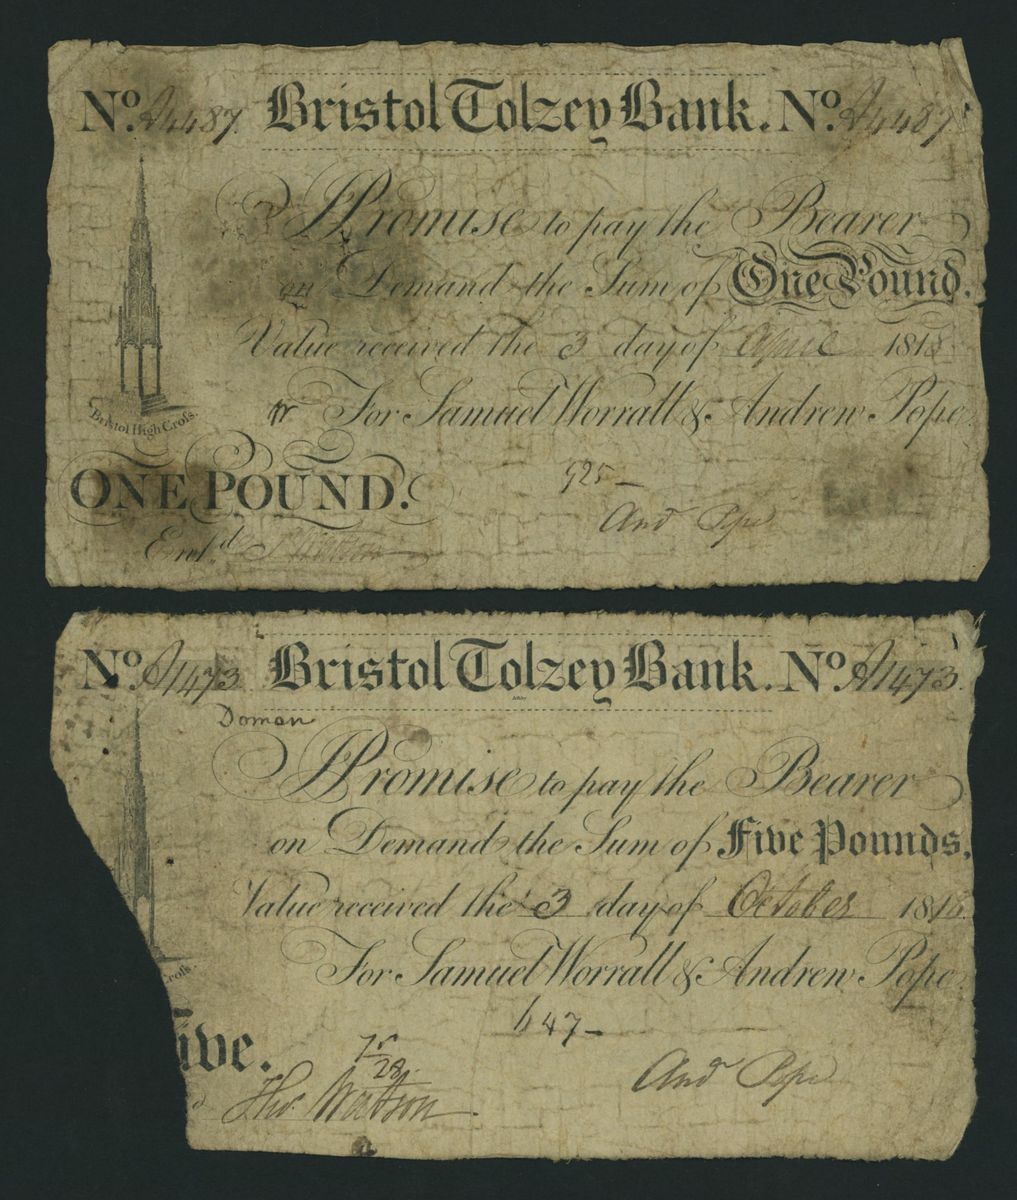 No. A4487. Bristol Tolzey Bank. No. A4487
I Promise to pay the Bearer
on Demand the Sum of One Pound.
Value received the 3 day of April 1818
For Samuel Worrall & Andrew Pope.
Bristol High Croſs.
925 –
ONE POUND.
And Pope
Ent.d
No. A1473 Bristol Tolzey Bank. No. A1473
Doman
I Promise to pay the Bearer
on Demand the Sum of Five Pounds.
Value received the 3 day of October 1818
For Samuel Worrall & Andrew Pope
Croſs.
647 –
ive.
28.
Thos. Watson
And Pope